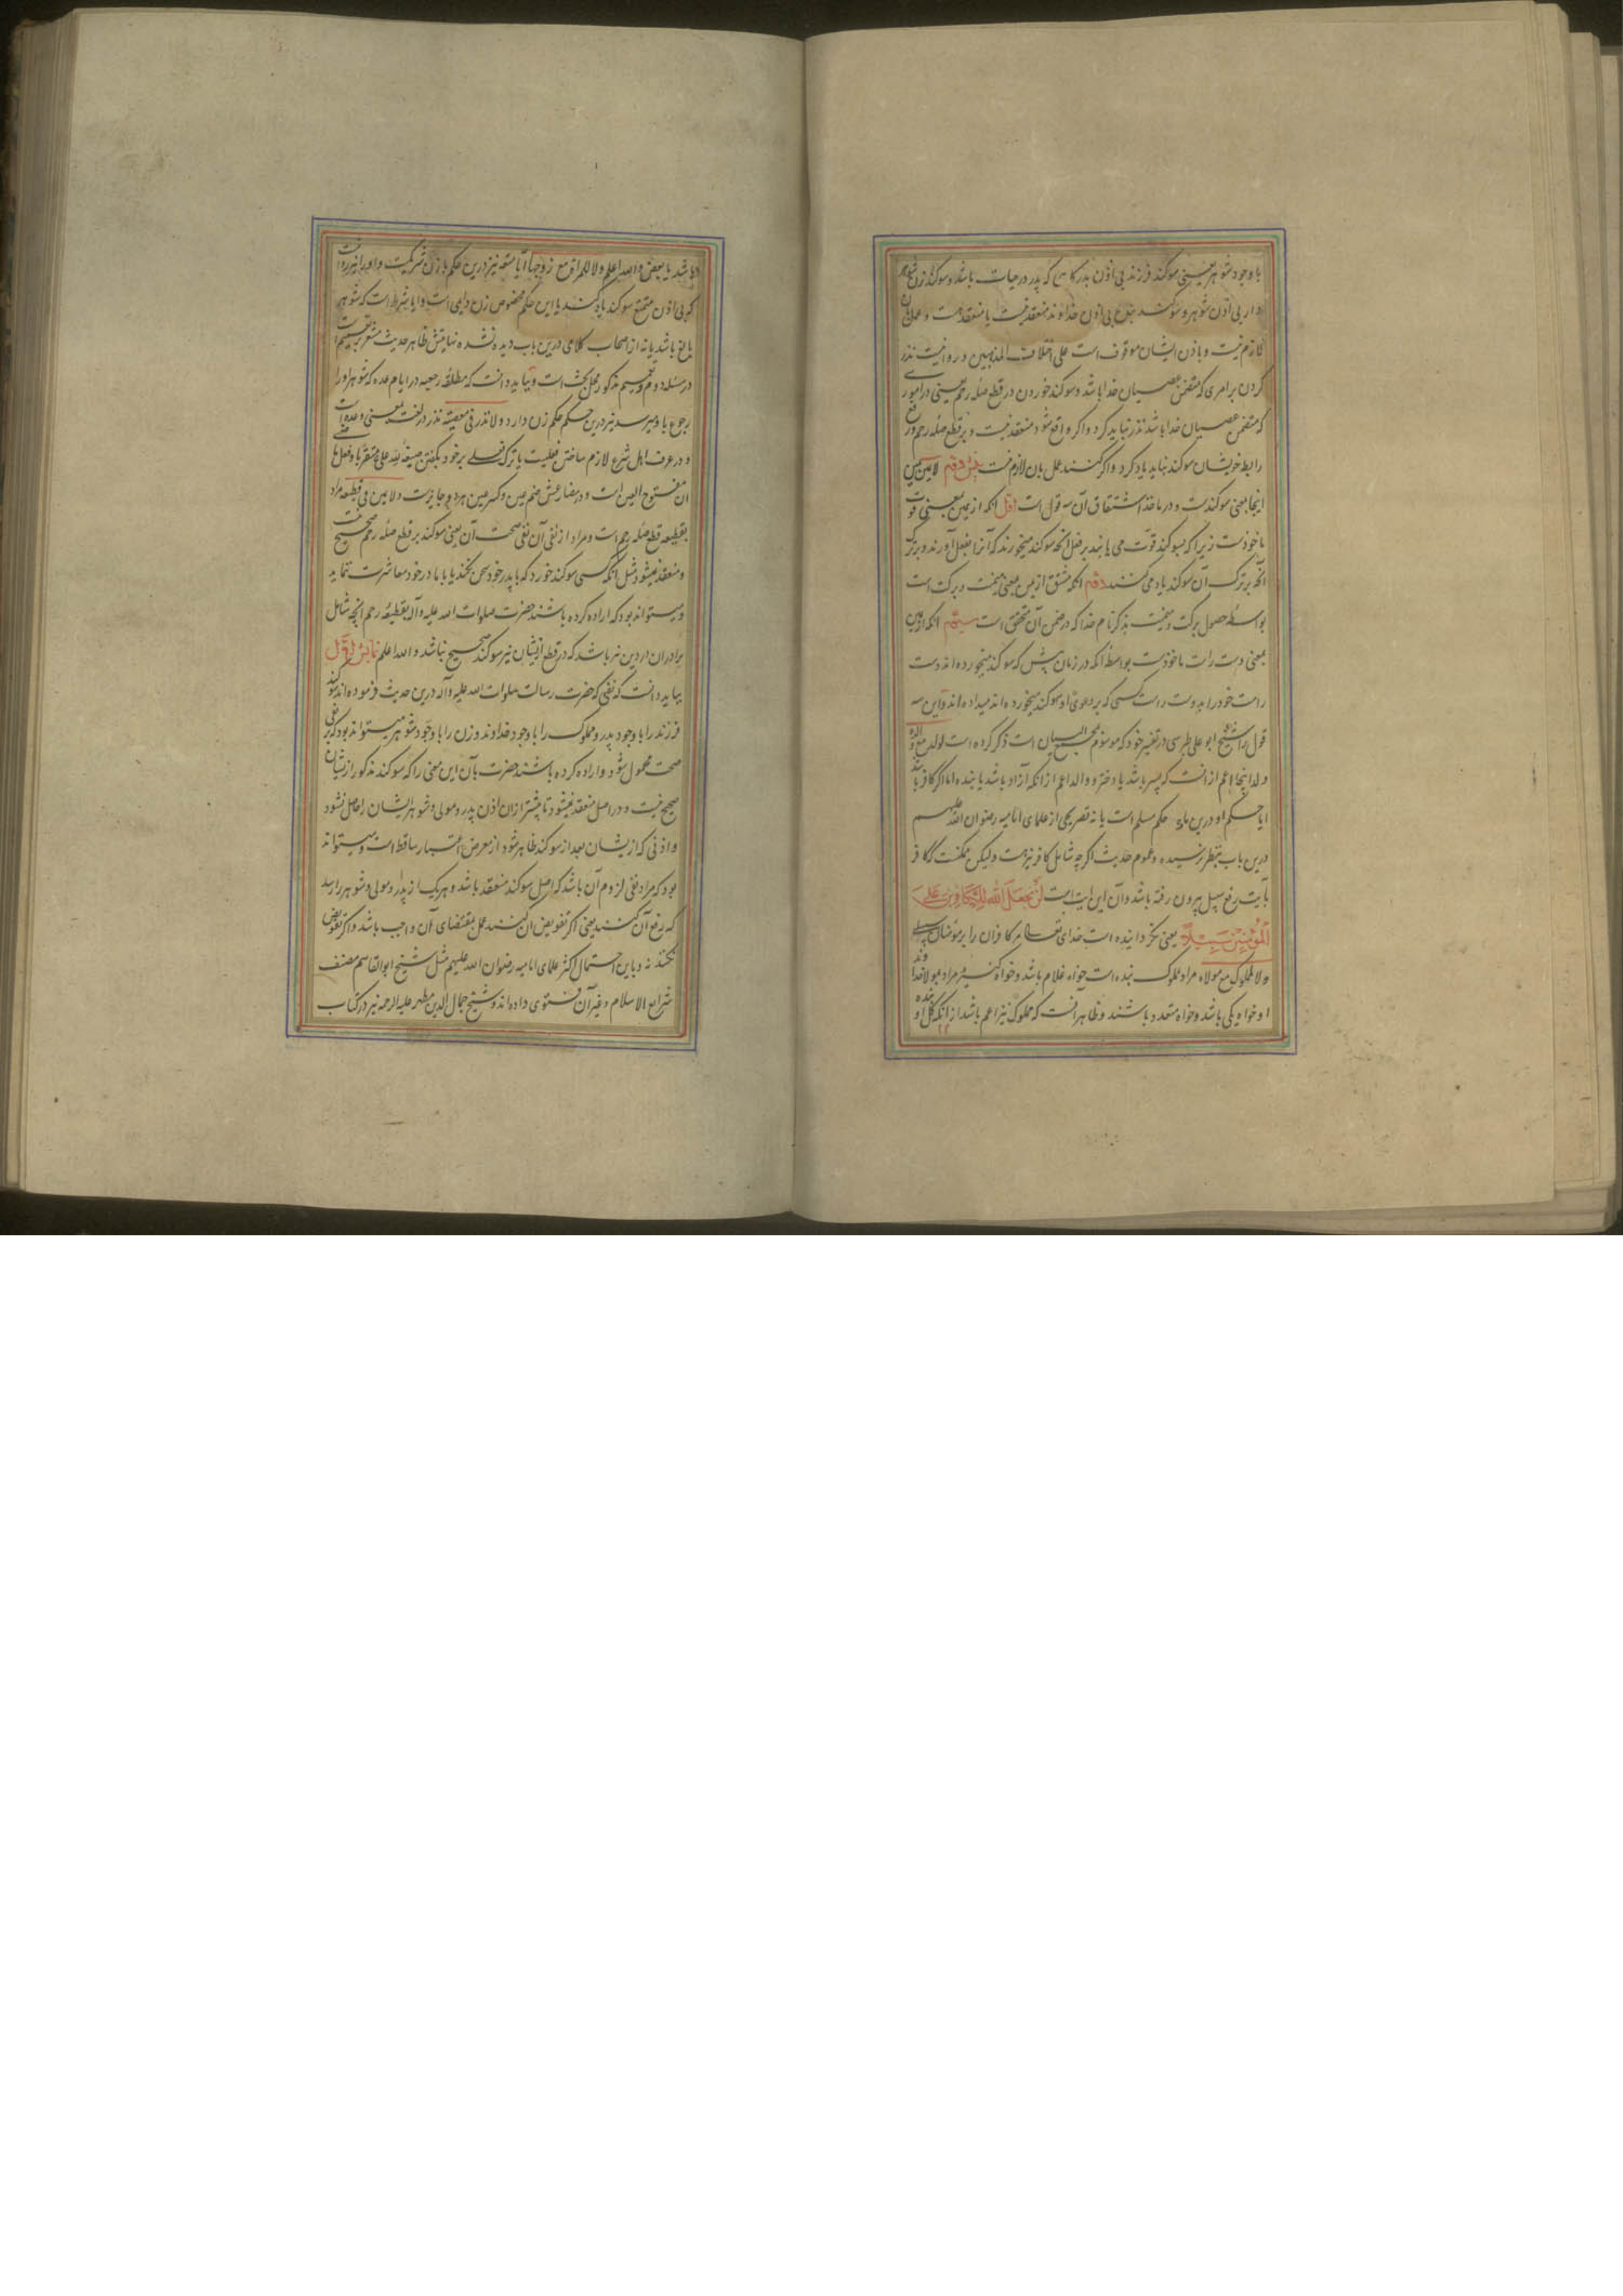 با وجود شوهر یعنی سوکند فرزند بی اذن پدر کاهی که پدر در حیات باشد و سوکند زن شوهر
دار بی اذن شوهر و سوکند بنده بی اذن خداوند منعقد نیست یا منعقد هست و عمل بآن
لازم نیست و باذن ایشان موقوف است علی اختلاف المذهبین و روا نیست نذر
کردن بر امری که متضمن عصیان خدا باشد و سوکند خوردن در قطع صله رحم یعنی در امور
که متضمن عصیان خدا باشد نذر نباید کرد و اکر واقع شود منعقد نیست و بر قطع صله رحم و رفع
رابطه خویشان سوکند نباید یاد کرد و اکر کنند عمل بان لازم نیست دوم لا یمین یمین
اینجا بمعنی سوکندست و در ماخذ اشتقاق آن سه قول است اول انکه از یمین بمعنی قوت
ماخوذست زیرا که بسوکند قوت می یابد بر فعل انچه سوکند میخورند که آنرا بفعل آورند و بر ترک
آنچه بر ترک آن سوکند یاد می کنند دوم انکه مشتق از یمین بمعنی یمنت و برکت است
بواسطه حصول برکت و یمنیت بذکر نام خدا که در ضمن آن محقق است سیوم انکه از یمین
بمعنی دست راست ماخوذست بواسطه انکه در زمان پیش که سوکند میخورده اند دست
راست خود را بدست راست کسی که بر دعوی او سوکند میخورده اند میداده اند و این سه
قول را شیخ ابو علی طبرسی در تفسیر خود که موسوم بمجمع البیان است ذکر کرده است لولد مع والده
ولد اینجا اعم از انست که پسر باشد یا دختر و والد اعم از انکه آزاد باشد یا بنده اما اکر کافر باشد
ایا حکم او درین ماده حکم مسلم است یا نه تصریحی از علمای امامیه رضوان الله علیهم
درین باب بنظر نرسیده و عموم حدیث اکرچه شامل کافر نیز هست و لیکن ممکنست که کافر
بآیت رفع سبیل بیرون رفته باشد و آن این ایت است لَنْ يَجْعَلَ اللّهُ لِلْكَافِرِينَ عَلَى
الْمُؤْمِنِينَ سَبِيلًا یعنی نکردانیده است خدای تعالی مر کافران را بر مؤمنان سبیلی
و لا للمملوک مع مولاه مراد مملوک بنده است خواه غلام باشد و خواه کنیز و مراد بمولا خداوند
او خواه یکی باشد و خواه متعدد باشند و ظاهر آنست که مملوک نیز اعم باشد از انکه کل او بنده
باشد یا بعض والله اعلم و لا للمراة مع زوجها آیا متعه نیز درین حکم با زن شریکست و او را نیز روا نیست
که بی اذن متمتع سوکند یاد کند یا این حکم مخصوص زن دایمی است و ایا شرط است که شوهر
بالغ باشد یا نه از اصحاب کلامی درین باب دیده نشده نهایتش ظاهر حدیث مشعر بتعمیم است
در مسئله دوم و تعمیم مذکور محل بحث است و بباید دانست که مطلقه رجعیه در ایام عده که شوهر او را
رجوع باو میرسد نیز درین حکم حکم زن دارد و لا نذر فی معصیة نذر در لغت بمعنی وعده است
و در عرف اهل شرع لازم ساختن فعلیست یا ترک فعلی بر خود بکفتن صیغه لله علی متقربا و فعل ماضی
ان مفتوح العین است و در مضارعش ضم عین و کسر عین هردو جایزست و لا یمین فی قطیعة مراد
بقطیعه قطع صله رحم است و مراد از نفی آن نفی صحت آن یعنی سوکند بر قطع صله رحم صحیح نیست
و منعقد نمیشود مثل انکه کسی سوکند خورد که با پدر خود سخن نکند یا با مادر خود معاشرت ننماید
و میتواند بود که اراده کرده باشند حضرت صلوات الله علیه و آله بقطیعه رحم انچه شامل
برادران در دین نیز باشد که در قطع ازیشان نیز سوکند صحیح نباشد و الله اعلم نمایش اول
بباید دانست که نفی که حضرت رسالت صلوات الله علیه و آله درین حدیث فرموده اند سوکند
فرزند را با وجود پدر و مملوک را با وجود خداوند و زن را با وجود شوهر میتواند بود که بر نفی
صحت محمول شود و اراده کرده باشند حضرت بآن این معنی را که سوکند مذکور ازیشان
صحیح نیست و در اصل منعقد نمیشود تا پیشتر از ان اذن پدر و مولی و شوهر ایشان را حاصل نشود
و اذنی که ازیشان بعد از سوکند ظاهر شود از معرض اعتبار ساقط است و میتواند
بود که مراد نفی لزوم آن باشد که اصل سوکند منعقد باشد و هریک از پدر و مولی و شوهر را رسد
که رفع آن کنند یعنی اکر تفویض ان کنند عمل بمقتضای آن واجب باشد و اکر تفویض
نکنند نه و باین احتمال اکثر علمای امامیه رضوان الله علیهم مثل شیخ ابو القاسم مصنف
شرایع الاسلام و غیر آن فتوی داده اند و شیخ جمال الدین مطهر علیه الرحمه نیز در کتاب